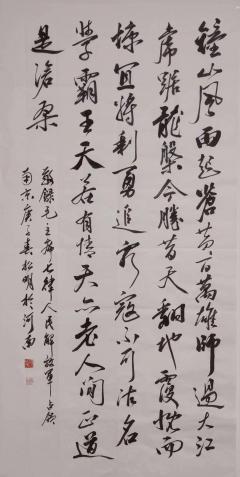 鐘山風雨起蒼黃百萬雄師過大江
虎踞龍槃今勝昔天翻地覆慨而
慷宜將剩勇追窮寇不可沽名
學霸王天若有情天亦老人間正道
是滄桑
敬錄毛主席七律人民解放軍占領
南京庚子春松明於河南